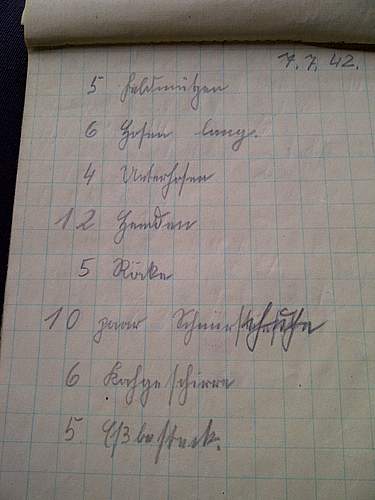 7. 7. 42.
5 Feldmützen
6 Hosen lang.
4 Unterhosen
12 Hemden
5 Röcke
10 paar Schnürschuhe
6 Kochgeschirre
5 Eßbesteck.